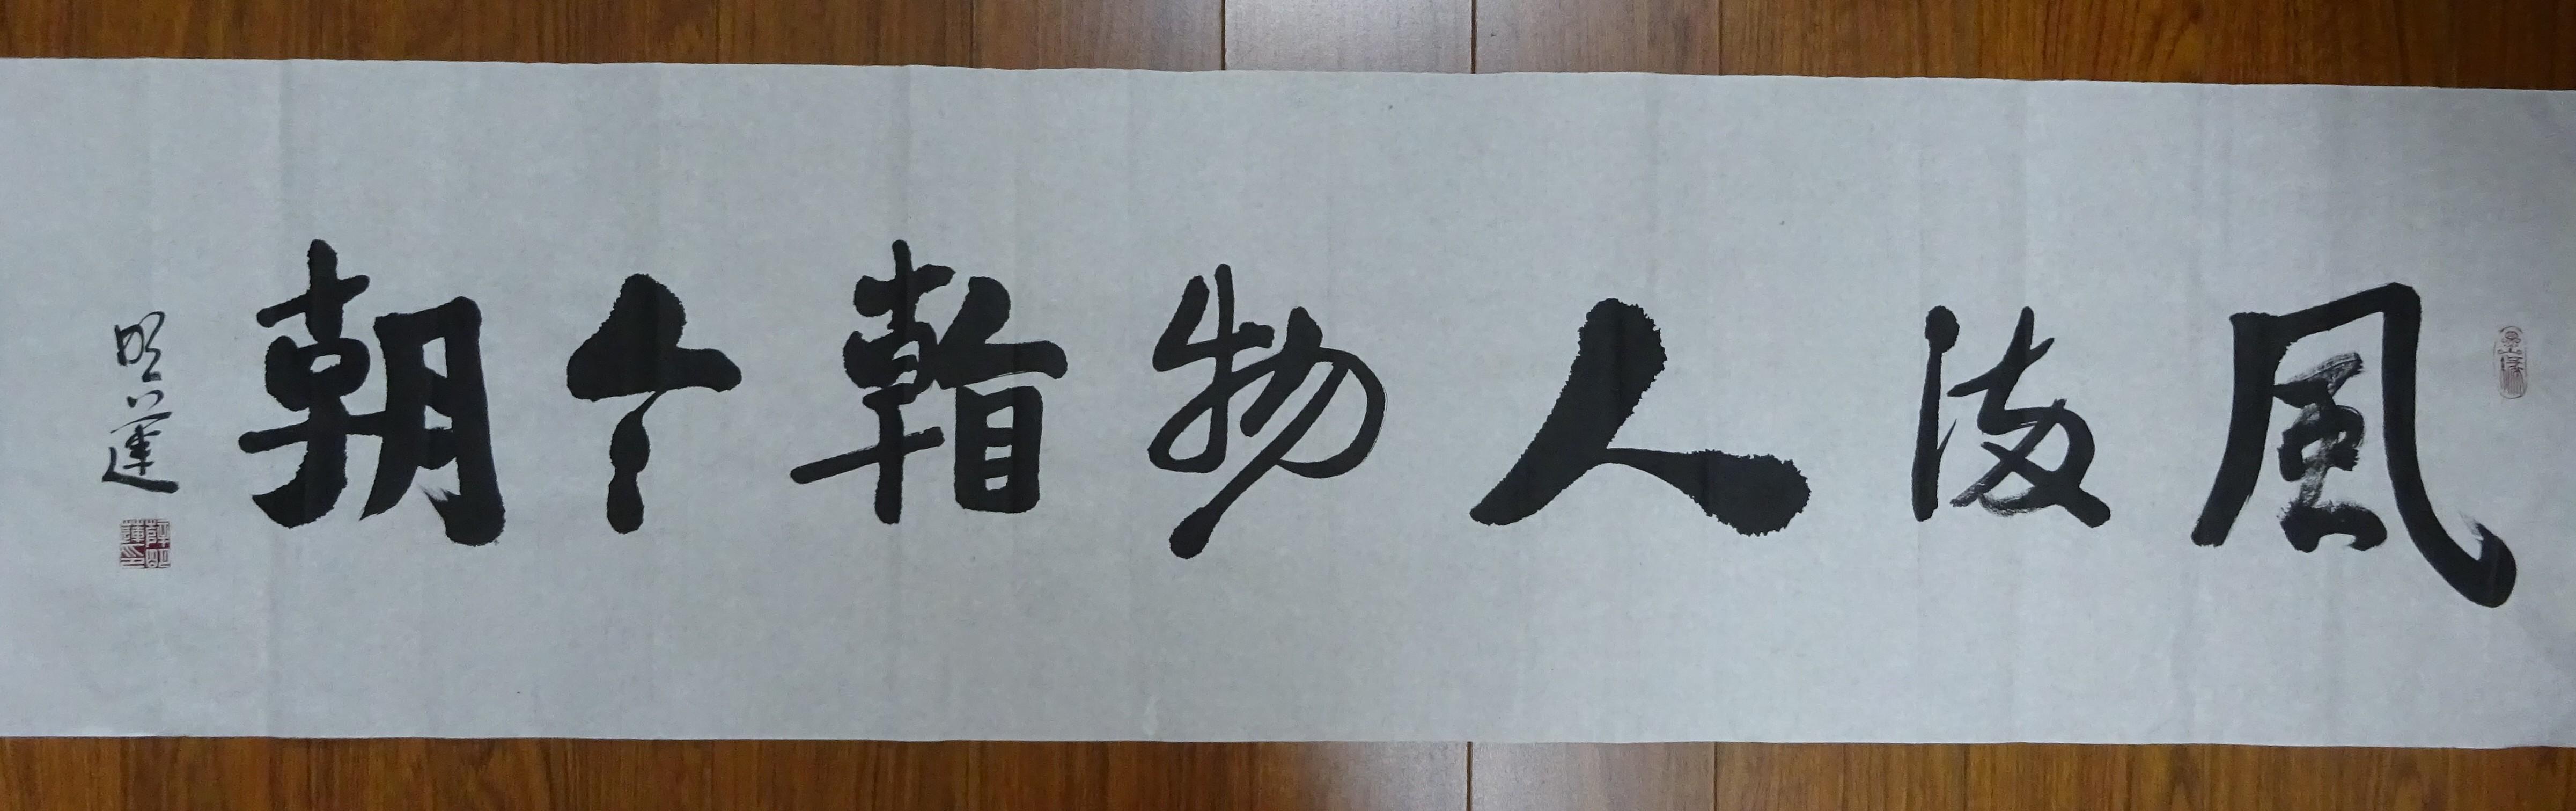 風流人物看今朝
明蓮